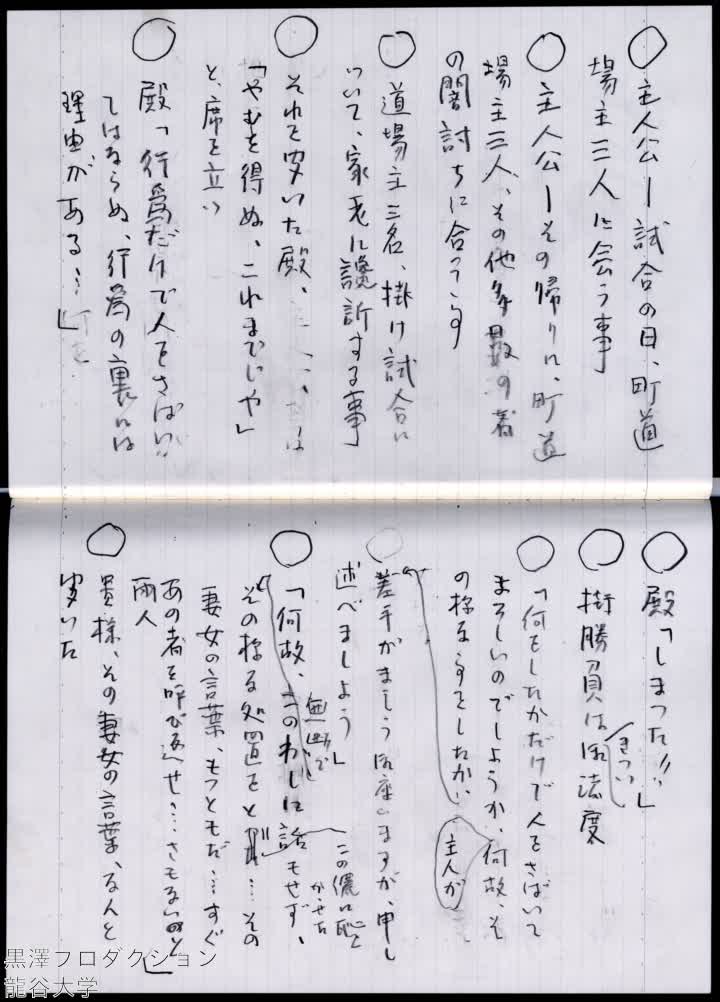 ○ 主人公ー試合の日、町道
場主三人に会う事
○ 主人公ーその帰りに、町道
場主三人、その他多数の者
の闇討ちに合っ
○ 道場主三名、掛け試合に
ついて、家老に讒訴する事
○ それを聞いた殿、
「やむを得ぬ、これまでじや」
と、席を立つ
○ 殿「行為だけで人をさばい
てはならぬ、行為の裏には
理由がある…」
○ 殿「しまった!!」
○ 掛勝負は きつい 御法度
○ 「何をしたかだけで人をさばいて
よろしいのでしようか、何故、そ
の様な事をしたか、 主人が
○ 差手がましう御座いますが、申し
述べましよう」
○ 「何故、このわしに 無断で 話もせず、
その様な処置をと その
この儂に恥を
かかせた
妻女の言葉、もつともだ…すぐ
あの者を呼び返せ…さもないと」
両人
○ 貴様、その妻女の言葉、なんと
聞いた
黒澤プロダクション
龍谷大学